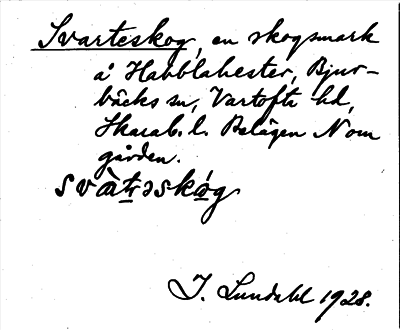 Svarteskog, en skogsmark
å Habblahester, Bjur-
bäcks sn, Vartofta hd,
Skarab. l. Belägen N om
gården.
svàt̲ɾəskó̲g
I. Lundahl 1928.